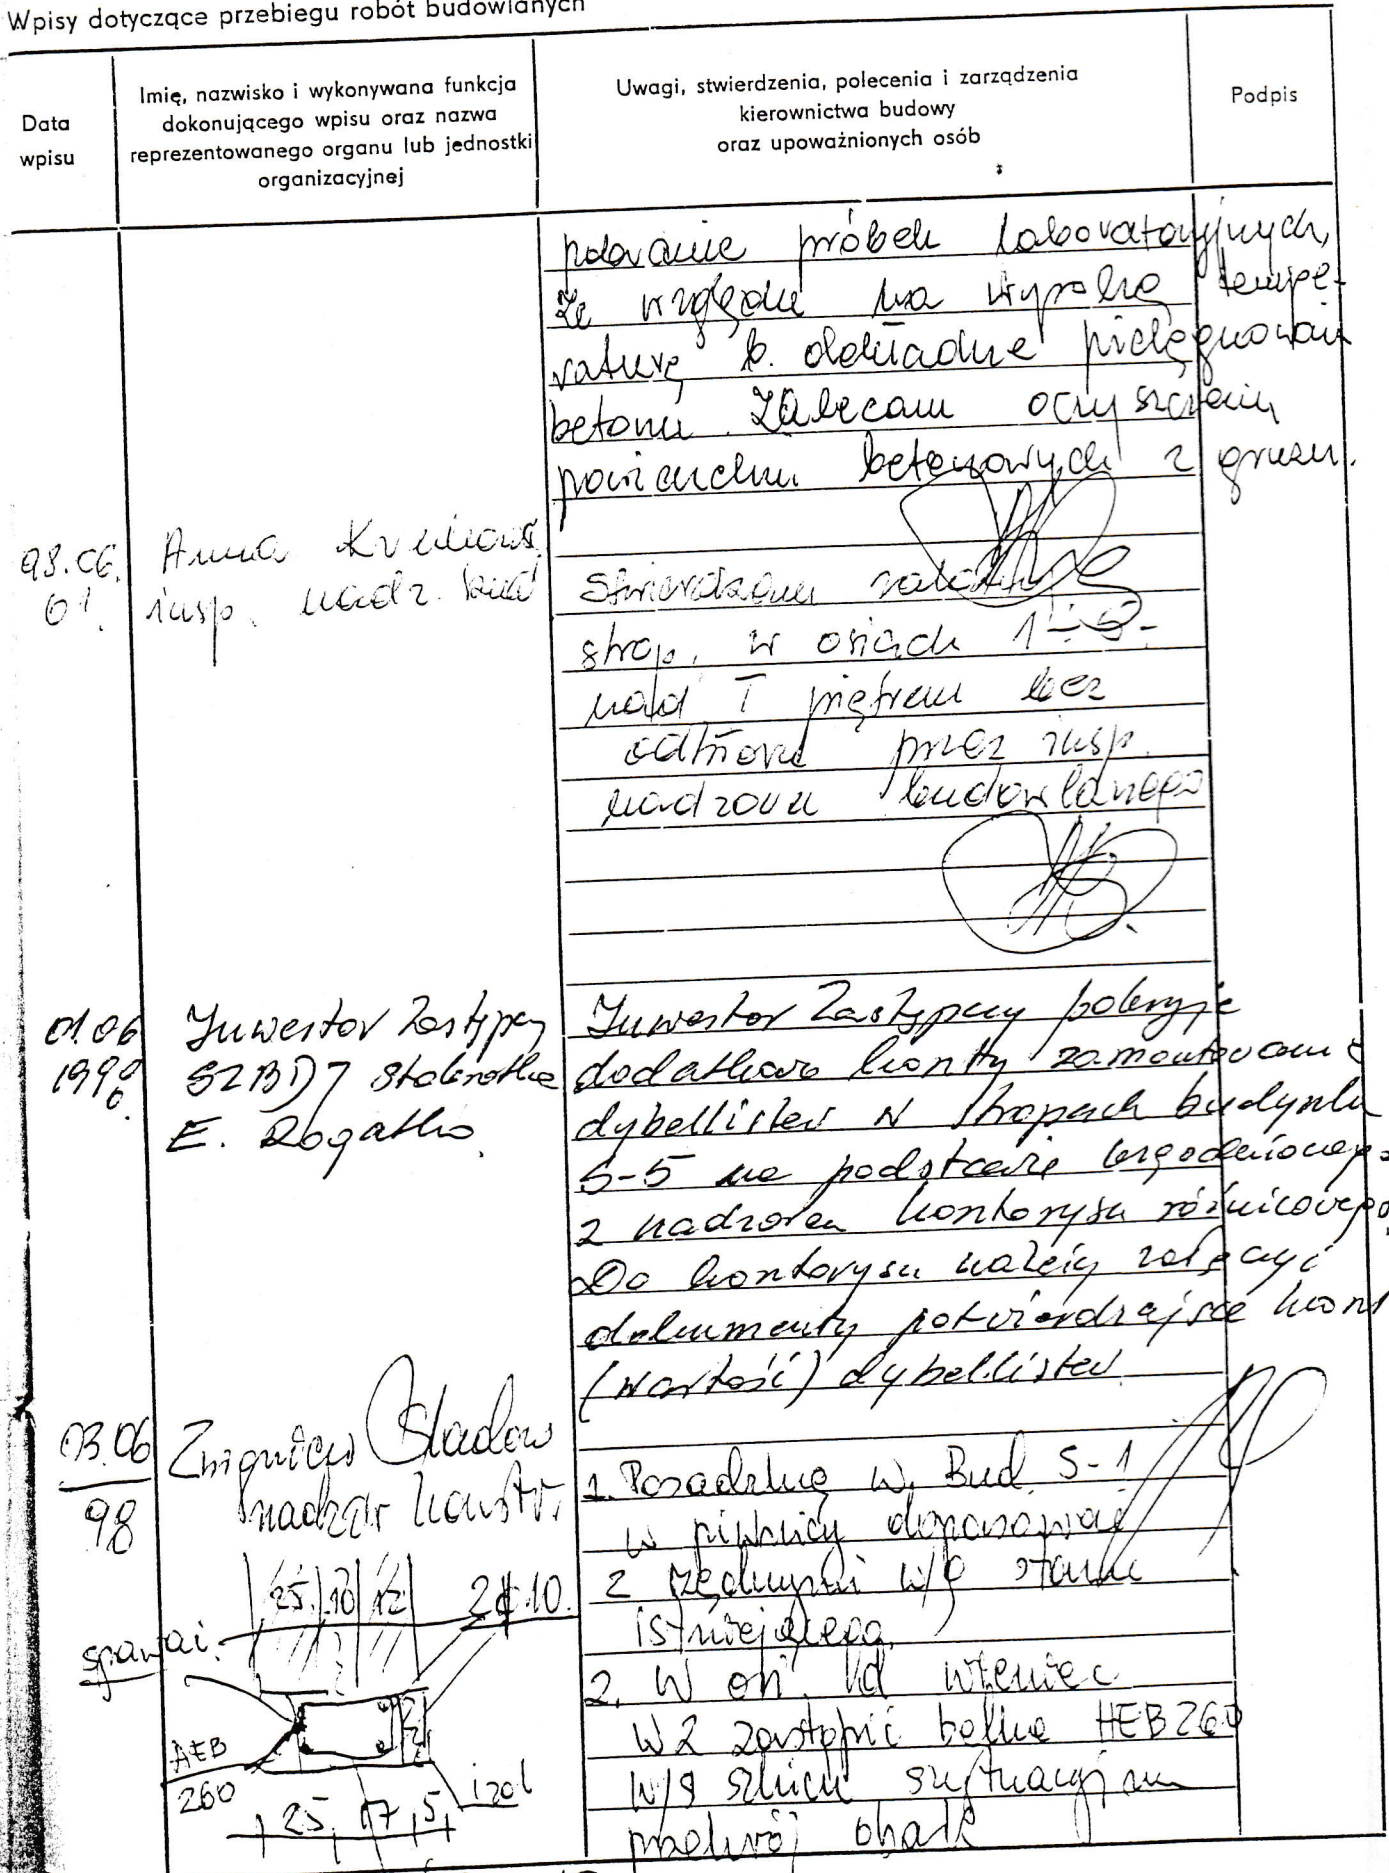 Wpisy dotyczące przebiegu robót budowlanych
Data
wpisu
Imię, nazwisko i wykonywana funkcja
dokonującego wpisu oraz nazwa
reprezentowanego organu lub jednostki
organizacyjnej
Uwagi, stwierdzenia, polecenia i zarządzenia
kierownictwa budowy
oraz upoważnionych osób
Podpis
próbek laboratoryjnych,
ze względu na wysoką tempe-
raturę b. dokładne pielęgnowani
betonu. Zalecam oczyszczenie
powierzchni betonowych z gruzu.
98.06.
01.
Anna
insp. nadz. bud
Stwierdzam
strop. w osiach 1-5-
nad I piętrem bez
odbioru przez insp.
nadzoru budowlanego
01.06
1998
Inwestor Zastępczy
SZBD7 Stokrotka
E. Rogatko.
Inwestor Zastępczy pokryje
dodatkowo koszty zamontowania
dybellistew w stropach budynku
S-5 na podstawie uzgodnionego
z nadzorem kosztorysu różnicowego
Do kosztorysu należy załączyć
dokumenty potwierdzające koszt
(wartość) dybellistew
03.06
98
Zbigniew
nadzór konstr.
1. Posadzkę w Bud. S-1
w piwnicy dopasować
z rzędnymi w/g stanu
istniejącego.
2. W osi wieniec
W2 zastąpić belką HEB260
w/g szkicu sytuacyjn
przekrój obok
25 10 12
2 ϕ 10.
spawać.
HEB
260
25 17 5
izol